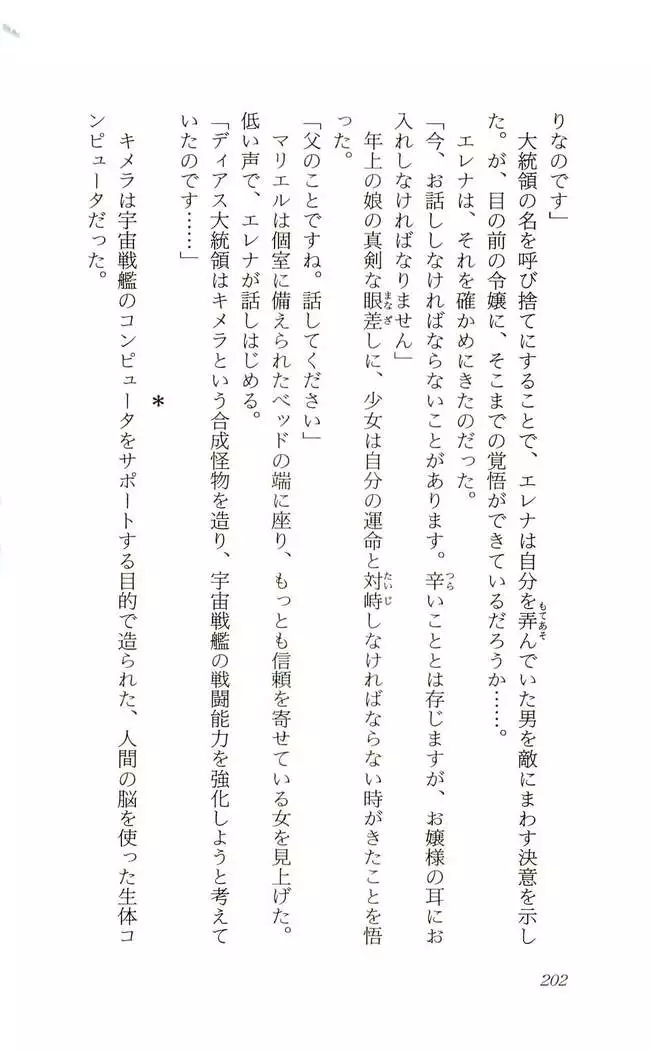 りなのです」
大統領の名を呼び捨てにすることで、エレナは自分を弄んでいた男を敵にまわす決意を示し
た。が、目の前の令嬢に、そこまでの覚悟ができているだろうか……。
エレナは、それを確かめにきたのだった。
「今、お話ししなければならないことがあります。辛いこととは存じますが、お嬢様の耳にお
入れしなければなりません」
年上の娘の真剣な眼差しに、少女は自分の運命と対峙しなければならない時がきたことを悟
った。
「父のことですね。話してください」
マリエルは個室に備えられたベッドの端に座り、もっとも信頼を寄せている女を見上げた。
低い声で、エレナが話しはじめる。
「ディアス大統領はキメラという合成怪物を造り、宇宙戦艦の戦闘能力を強化しようと考えて
いたのです……」
*
キメラは宇宙戦艦のコンピュータをサポートする目的で造られた、人間の脳を使った生体コ
ンピュータだった。
202